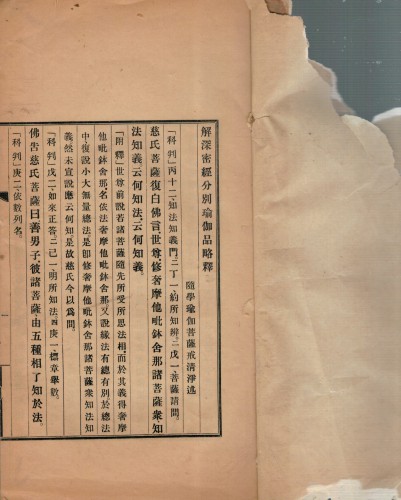 解深密經分別瑜伽品略釋
隨學瑜伽菩薩戒清淨述
「科判」丙十二、知法知義門三丁一、約所知辨二戊一、菩薩請問。
慈氏菩薩復白佛言、世尊、修奢摩他毗鉢舍那諸菩薩衆、知
法知義、云何知法、云何知義。
「附釋」世尊前說若諸菩薩隨先所受所思法相而於其義得奢摩
他毗鉢舍那名依法奢摩他毗鉢舍那又說緣法有總有別於總法
中復說小大無量總法是即修奢摩他毗鉢舍那諸菩薩衆知法知
義然未宣說應云何知是故慈氏今以爲問。
「科判」戊二、如來正答二己一、明所知法四庚一、標章舉數。
佛告慈氏菩薩曰、善男子、彼諸菩薩、由五種相、了知於法。
「科判」庚二、依數列名。